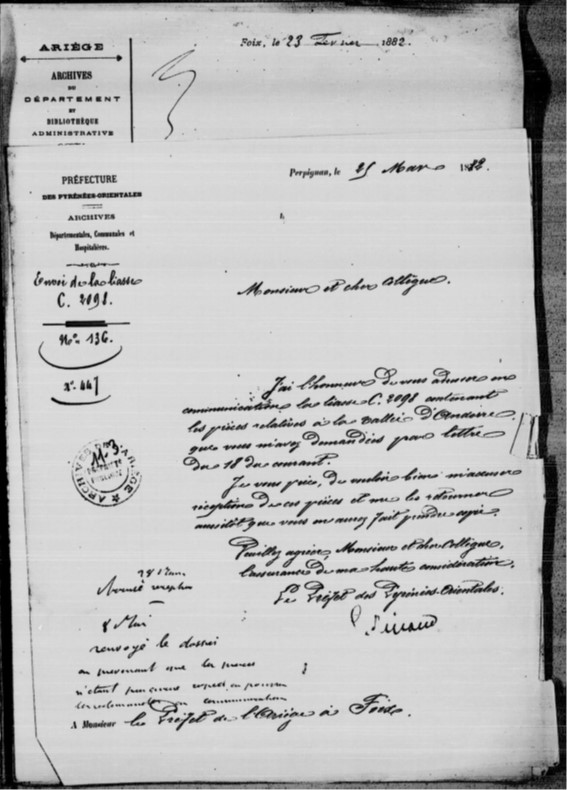 ARIÈGE
ARCHIVES
DU
DÉPARTEMENT
ET
BIBLIOTHÈQUE
ADMINISTRATIVE
Foix, le 23 Février 1882.
PRÉFECTURE
DES PYRÉNÉES-ORIENTALES
ARCHIVES
Départementales, Communales et
Hospitalières.
Envoi de la liasse
C. 2098.
N° 136.
Perpignan, le 25 Mars 1882.
Monsieur et cher Collègue.
J'ai l'honneur de vous adresser en
communication la liasse C. 2098 contenant
les pièces relatives à la vallée d'Andorre
que vous m'avez demandées par lettre
du 18 du courant.
Je vous prie, de vouloir bien m'accuser
réception de ces pièces et me les retourner
aussitôt que vous en aurez fait prendre copie.
Veuillez agréer, Monsieur et cher Collègue,
l'assurance de ma haute considération.
Le Préfet des Pyrénées-Orientales.
ARCHIVES
28 Mars
Accusé réception
8 Mai
renvoyé le dossier
en prévenant que les pièces
n'étant pas encore copiées, on pourra
en communication
A Monsieur le Préfet de l'Ariège à Foix.